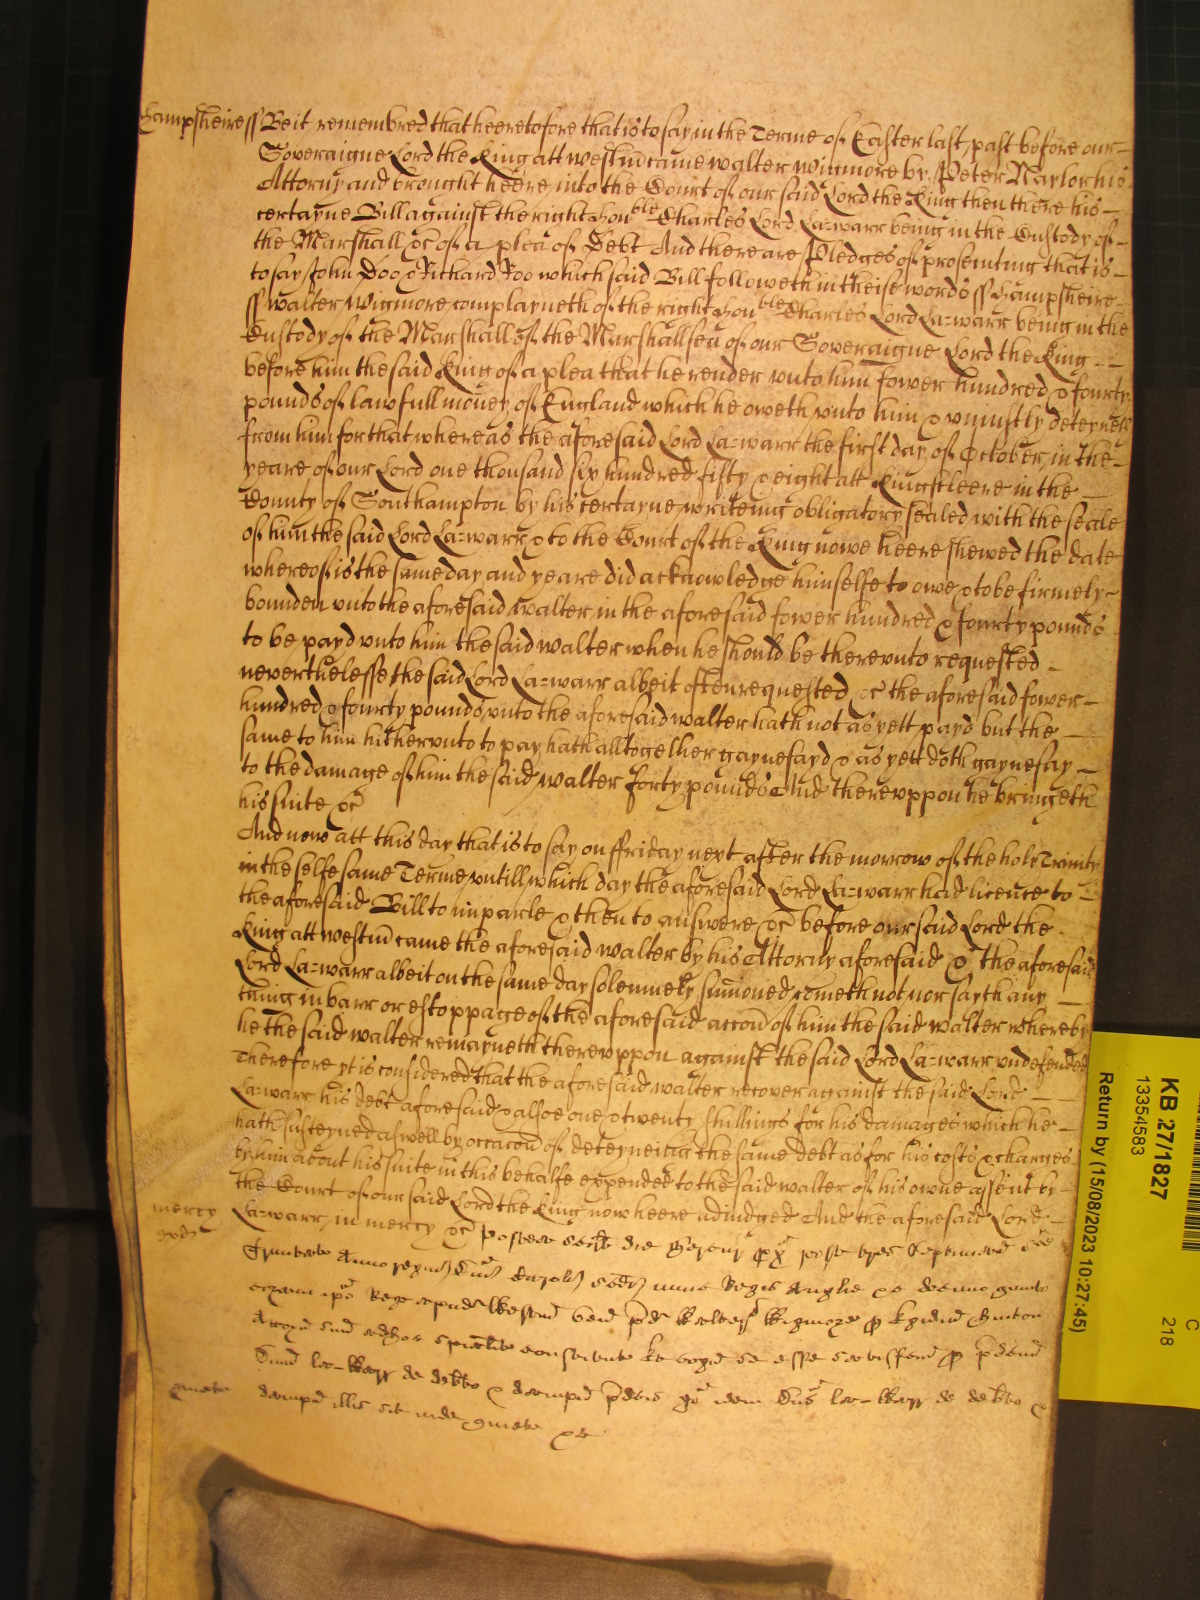 Hampsheire ss Be it remembred that heeretofore that is to say in the Terme of Easter last past before our
Soveraigne Lord the King att westm̄ came walter wigmore by Peter Naylor his
Attorny and brought heere into the Court of our said Lord the King then there his
certayne Bill against the right Honble Charles Lord La=warr being in the Custody of
the Marshall &c of a plea of Debt And there are Pledges of prosecuting that is
to say John Doo & Richard Roo which said Bill followeth in theise words ss Hampsheire
ss walter wigmore complayneth of the right Honble Charles Lord La=warr being in the
Custody of the Marshall of the Marshallsea of our Soveraigne Lord the King
before him the said King of a plea that he render unto him fower hundred & fourty
pounds of lawfull money of England which he oweth unto him & uniustly deteyneth
from him for that whereas the aforesaid Lord La=warr the first day of October in the
yeare of our Lord one thousand six hundred fifty & eight att Kingscleere in the
County of Southampton by his certayne writeing obligatory sealed with the seale
of him the said Lord La=warr & to the Court of the King nowe heere shewed the date
whereof is the same day and yeare did acknowledge himselfe to owe & to be firmely
bounden unto the aforesaid walter in the aforesaid fower hundred & fourty pounds
to be payd unto him the said walter when he should be thereunto requested
neverthelesse the said Lord La=warr albeit often requested &c the aforesaid fower
hundred & fourty pounds unto the aforesaid walter hath not as yett payd but the
same to him hitherunto to pay hath alltogether gaynesayd & as yett doth gaynesay
to the damage of him the said walter forty pounds And thereuppon he bringeth
his suite &c
And now att this day that is to say on ffriday next after the morrow of the holy Trinity
in the selfe same Terme untill which day the aforesaid Lord La=warr had licence to
the aforesaid Bill to imparle & then to answere &c before our said Lord the
King att westm̄ came the aforesaid walter by his Attorny aforesaid & the aforesaid
Lord La=warr albeit on the same day solemnely sum̄oned cometh not nor sayth any
thing in barr or estoppage of the aforesaid accon̄ of him the said walter whereby
he the said walter remayneth thereuppon against the said Lord La=warr undefended
Therefore yt is considered that the aforesaid walter recover against the said Lord
La=warr his debt aforesaid & alsoe one & twenty shillings for his damages which he
hath susteyned aswell by occacon̄ of deteyneing the same debt as for his costs & charges
by him about his suite in this behalfe expended to the said walter of his owne assent by
the Court of our said Lord the King now heere adiudged And the aforesaid Lord
mercy
La=warr in mercy &c Postea scilt die post tres Septimanas
Trinitatis Anno regni Dni Caroli scdi nunc Regis Anglie &c decimo quinto
coram ipo Rege apud Westm̄ ven̄ pd Walterus Wigmore p
Attorn̄ suū
Dn̄m La=Warr de debito & dampn̄ pdcis ideo idem Dn̄s La=Warr de debito &
quiet
dampn̄ illis sit inde quiet &c
KB 27/1827
13354583
Return by (15/08/2023 10:27:45)
C
218